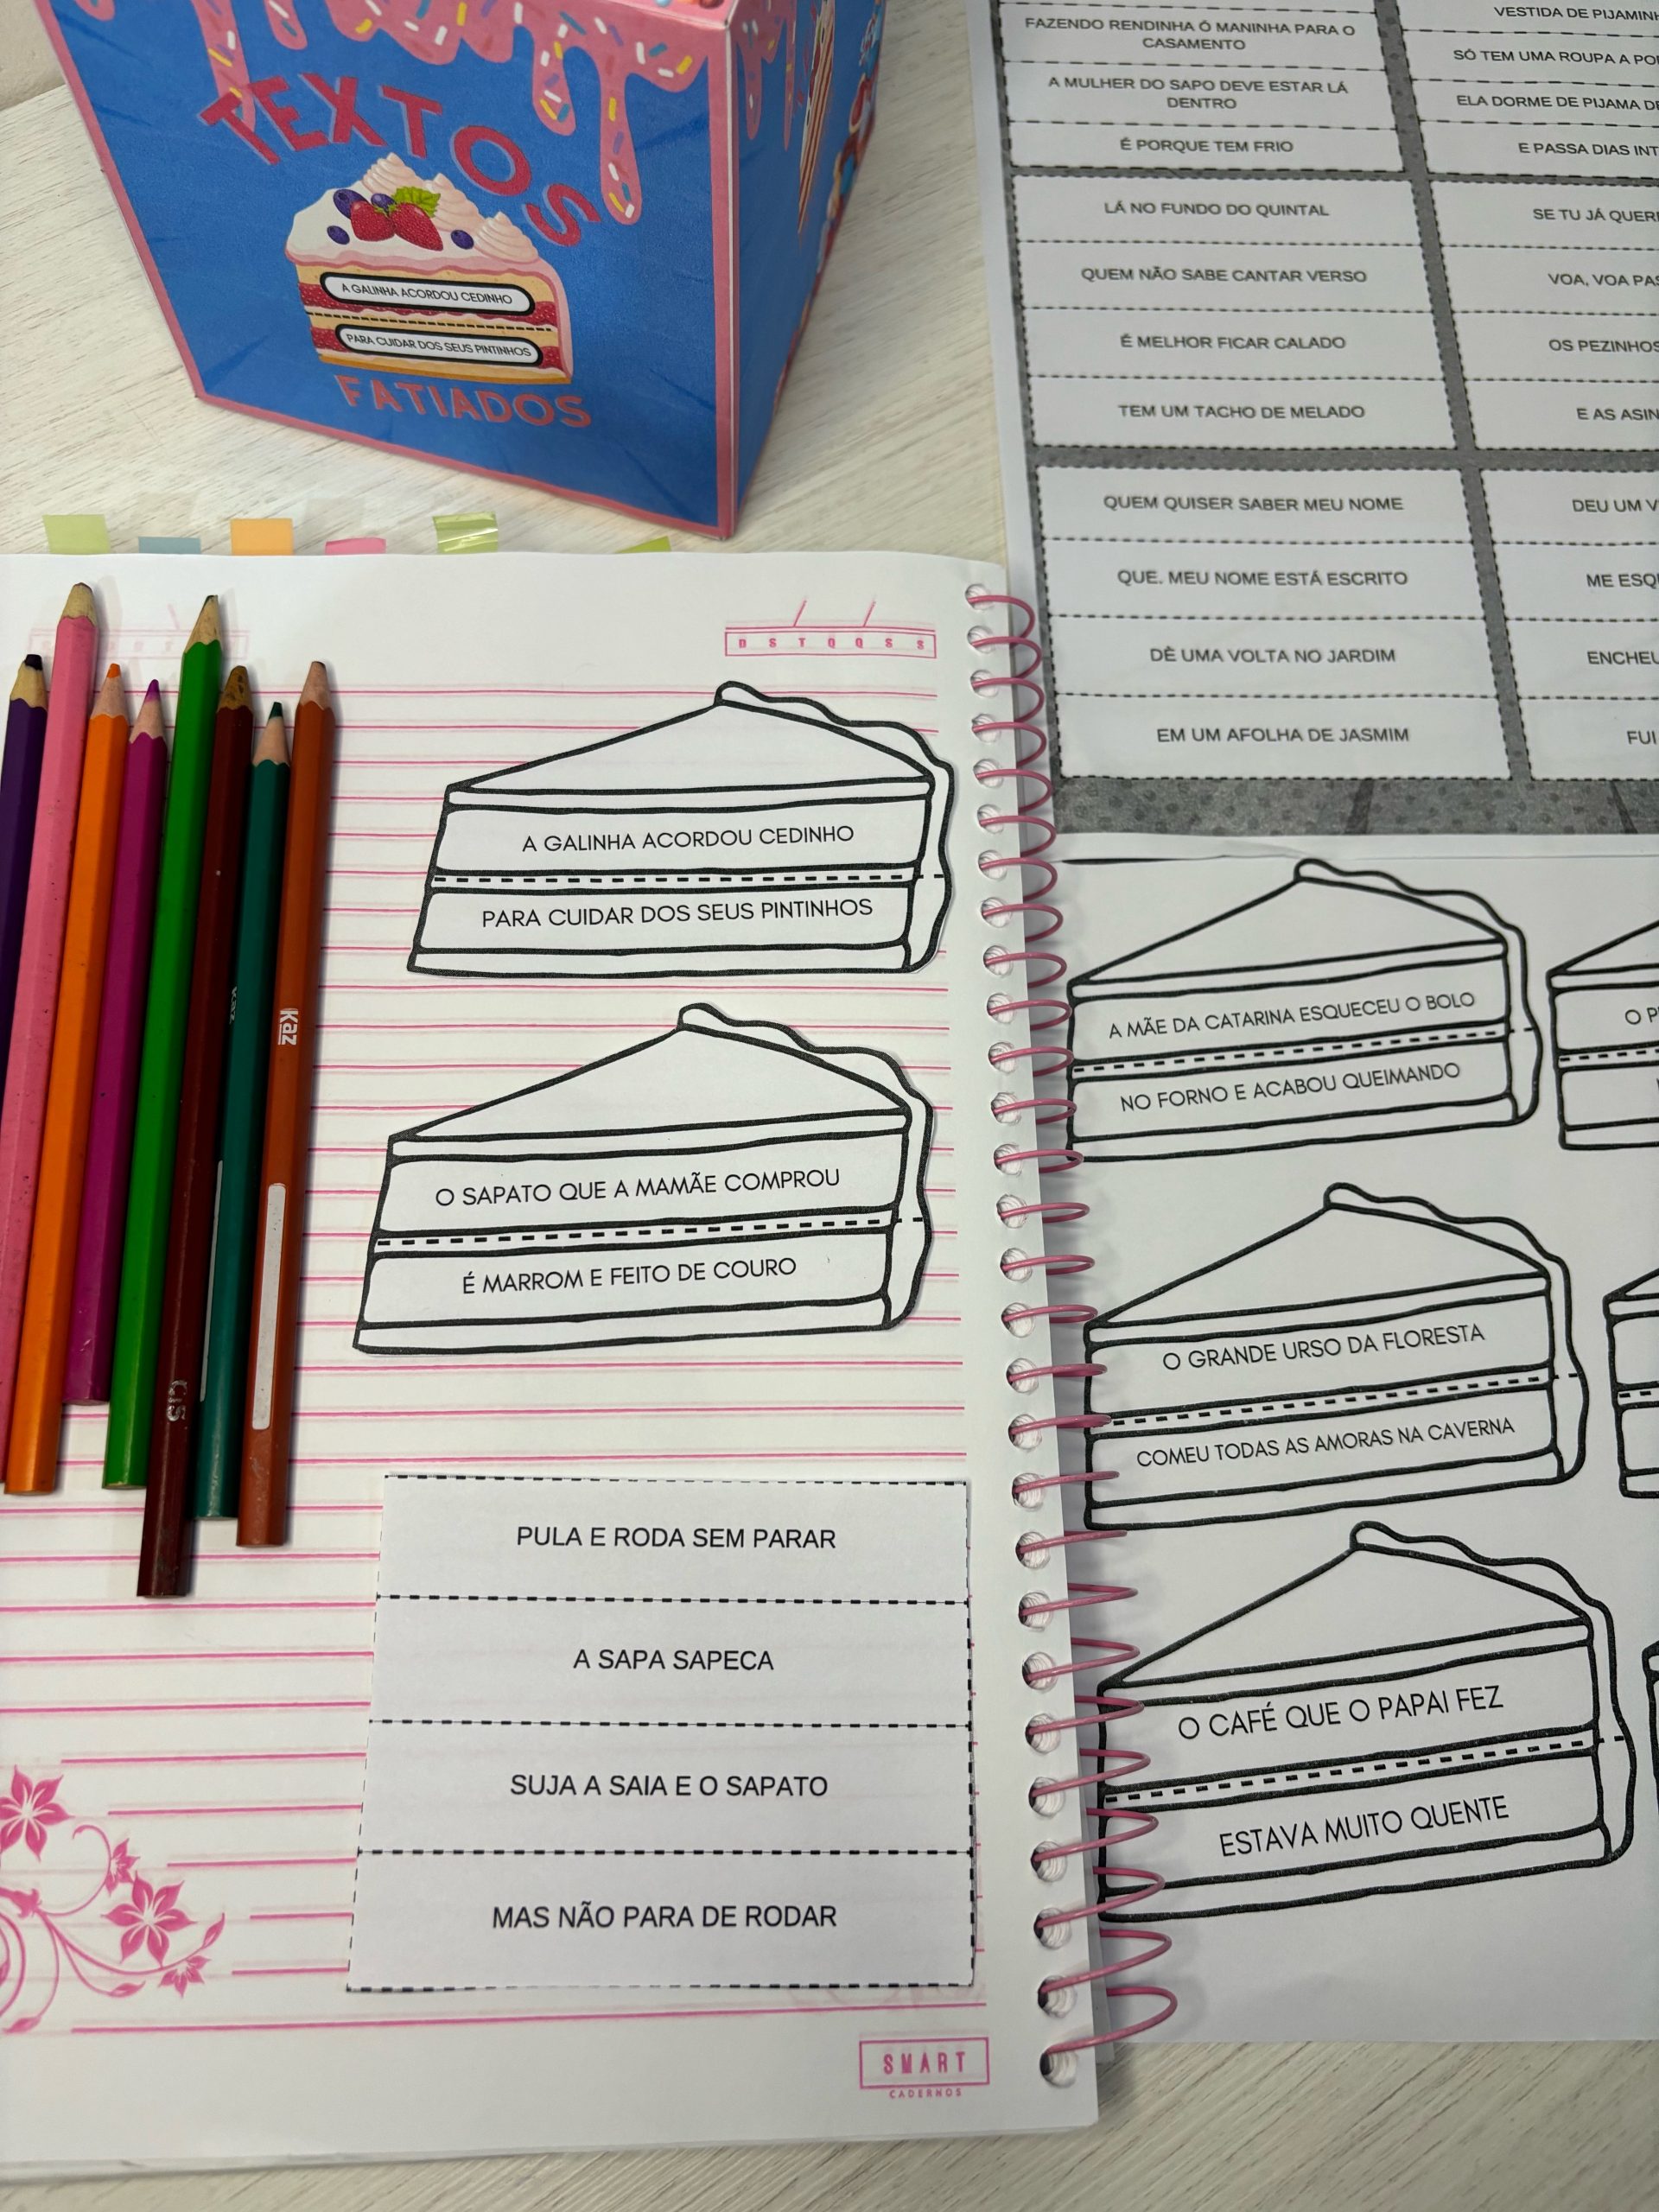 TEXTOS
A GALINHA ACORDOU CEDINHO
PARA CUIDAR DOS SEUS PINTINHOS
FATIADOS
FAZENDO RENDINHA Ó MANINHA PARA O
CASAMENTO
A MULHER DO SAPO DEVE ESTAR LÁ
DENTRO
É PORQUE TEM FRIO
LÁ NO FUNDO DO QUINTAL
QUEM NÃO SABE CANTAR VERSO
É MELHOR FICAR CALADO
TEM UM TACHO DE MELADO
QUEM QUISER SABER MEU NOME
QUE. MEU NOME ESTÁ ESCRITO
DÊ UMA VOLTA NO JARDIM
EM UM AFOLHA DE JASMIM
VESTIDA DE
SÓ TEM UMA ROUPA A
ELA DORME DE PIJAMA
E PASSA DIAS
SE TU JÁ
VOA, VOA
OS
E AS
DEU UM
ME
FUI
D S T Q Q S S
A GALINHA ACORDOU CEDINHO
PARA CUIDAR DOS SEUS PINTINHOS
O SAPATO QUE A MAMÃE COMPROU
É MARROM E FEITO DE COURO
PULA E RODA SEM PARAR
A SAPA SAPECA
SUJA A SAIA E O SAPATO
MAS NÃO PARA DE RODAR
SMART
CADERNOS
kaz
kaz
CIS
A MÃE DA CATARINA ESQUECEU O BOLO
NO FORNO E ACABOU QUEIMANDO
O GRANDE URSO DA FLORESTA
COMEU TODAS AS AMORAS NA CAVERNA
O CAFÉ QUE O PAPAI FEZ
ESTAVA MUITO QUENTE
O